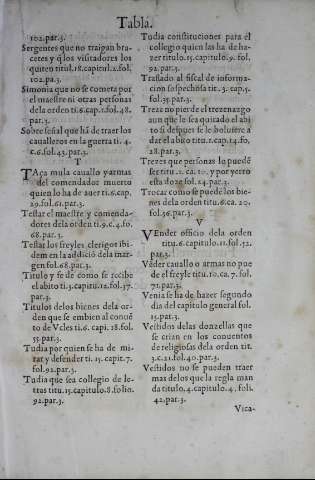 Tabla.
102.par.3.
Sergentes que no traigan bra-
cetes y q̃ los visitadores los
quiten titul.18.capitul.2.fol.
102.pa.3.
Simonia que no se cometa por
el maestre ni otras personas
dela orden ti.6.cap.1.fol.48.
par.3.
Sobre señal que há de traer los
caualleros en la guerra ti.4.
c.6.fol.43.par.3.
T
TAça mula cauallo y armas
del comendador muerto
quien lo ha de auer ti.6.cap.
29.fol.61.par.3.
Testar el maestre y comenda-
dores dela orden ti.9.c.4.fo.
68.par.3.
Testar los freyles clerigos ibi-
dem en la addició dela mar-
gen fol.68.par.3.
Titulo y fe de como se recibe
el abito ti.3.capitu.12.fol.37.
par.3.
Titulos delos bienes dela or-
den que se embien al conué
to de Vcles ti.6.capi.18.fol.
55.par.3.
Tudia por quien se ha de mi-
rar y defender ti.15.capit.7.
fol.92.par.3.
Tudia que sea collegio de le-
tras titu.15.capitulo.8.folio.
92.par.3.
Tudia constituciones para el
collegio quien las ha de ha-
zer titulo.15.capitulo.9.fol.
92.par.3.
Traslado al fiscal de informa-
cion sospechosa tit.3.cap.5.
fol.35.par.3.
Treze no pierde el trezenazgo
aun que le sea quitado el abi
to si despues se le boluiere a
dar el abito titu.1.cap.14.fo.
28.par.3.
Trezes que personas lo puedẽ
ser titu.1.ca.10.y por yerro
esta doze fol.24.par.3.
Trocar como se puede los bie-
nes dela orden titu.6.ca.20.
fol.56.par.3.
V
VEnder officio dela orden
titu.6.capitulo.11.fol.52.
par.3.
Vẽder cauallo o armas no pue
de el freyle titu.10.ca.7.fol.
71.par.3.
Venia se ha de hazer segundo
dia del capitulo general fol.
15.par.3.
Vestidos delas donzellas que
se crian en los conuentos
de religiosas dela orden tit.
3.c.21.fol.40.par.3.
Vestidos no se pueden traer
mas delos que la regla man
da titulo.4.capitulo.4.foli.
42.par.3.
Vica-